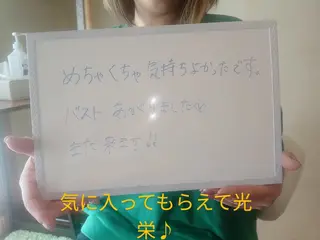 めちゃくちゃ気持ちよかったです。
バスト あがりましたw
また来ます!!
気に入ってもらえて光
栄♪